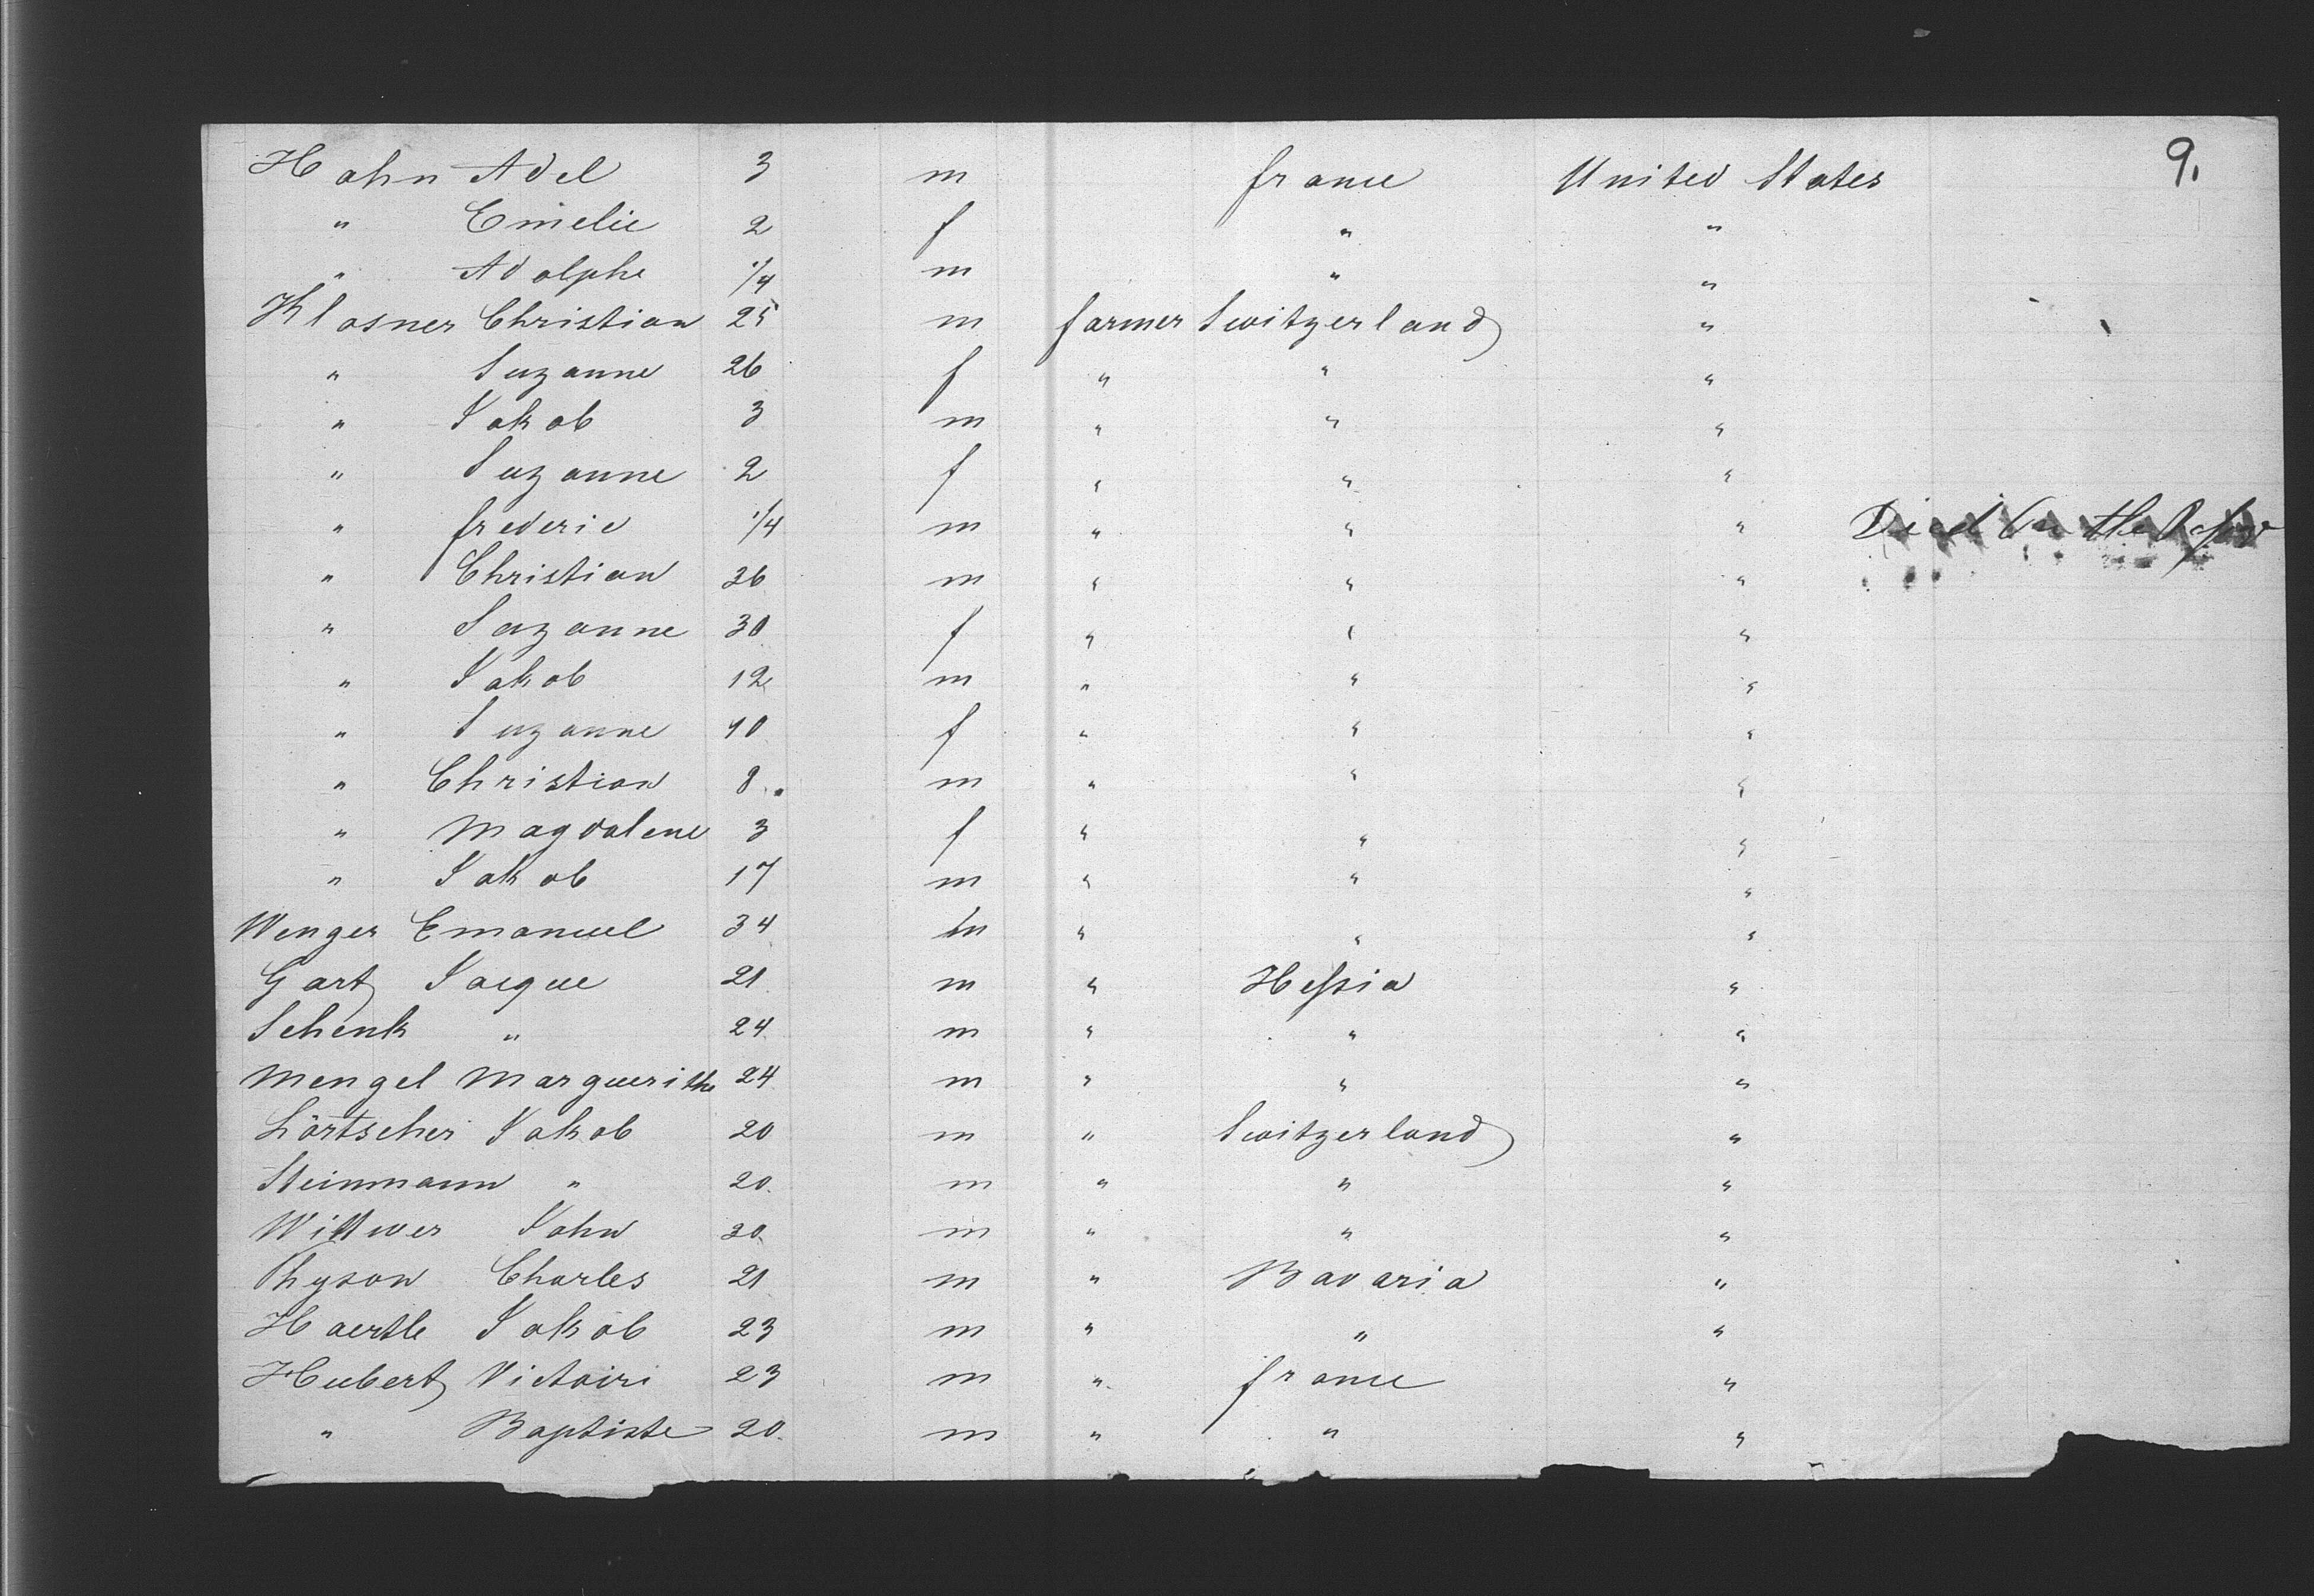 9.
Hahn Adel 3 m france United States
" Emelie 2 f " "
" Adolphe 1/4 m " "
Klosner Christian 25 m farmer Switzerland "
" Suzanne 26 f " " "
" Jakob 3 m " " "
" Suzanne 2 f " " "
" frederic 1/4 m " " " Died On the
" Christian 36 m " " "
" Suzanne 30 f " " "
" Jakob 12 m " " "
" Suzanne 10 f " " "
" Christian 8 m " " "
" Magdalene 3 f " " "
" Jakob 17 m " " "
Wenger Emanuel 34 m " " "
Gart Jacque 21 m " Hessia "
Schenk " 24 m " " "
Mengel Marguerithe 24 m " " "
Lörtscher Jakob 20 m " Switzerland "
Steinmann " 20. m " " "
Wittwer John 30. m " " "
Thyson Charles 21 m " Bavaria "
Haertle Jakob 23 m " " "
Hubert Victoiri 23 m " france "
" Baptiste 20. m " " "